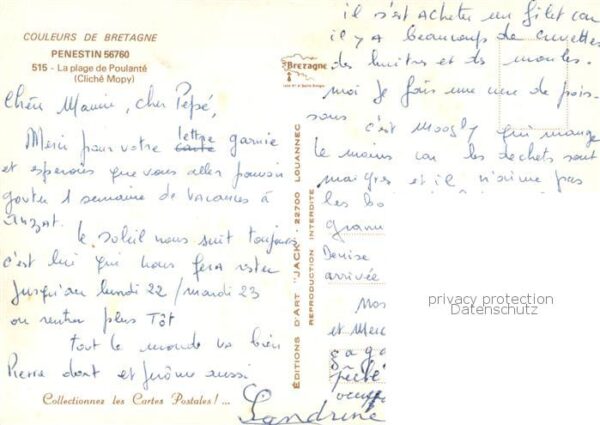 COULEURS DE BRETAGNE
PENESTIN 56760
515 - La plage de Poulanté
(Cliché Mopy)
Chère Mamie, cher Pépé,
Merci pour votre lettre garnie
et espérons que vous allez pouvoir
gouter 1 semaine de vacances à
Anzat.
le soleil nous suit toujours
c'est lui qui nous fera rester
jusqu'au lundi 22 / mardi 23
ou rentrer plus tôt
tout le monde va bien
Pierre dort et Jérôme aussi
Collectionnez les Cartes Postales ! ...
Sandrine
Bretagne
EDITIONS D'ART "JACK" - 22700 LOUANNEC
REPRODUCTION INTERDITE
il s'est acheter un filet car
il y a beaucoup de crevettes
des huitres et des moules.
moi je fais une cure de pois-
sons c'est Moogly qui mange
le moins car les dechets sont
maigres et il n'aime pas
les
Denise
arrivée
Nos
et Merc
privacy protection
Datenschutz